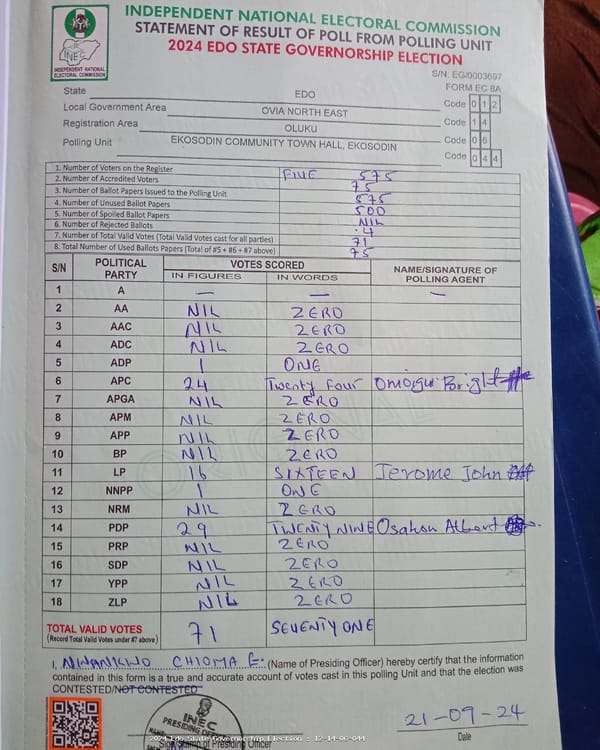 INDEPENDENT NATIONAL ELECTORAL COMMISSION
STATEMENT OF RESULT OF POLL FROM POLLING UNIT
2024 EDO STATE GOVERNORSHIP ELECTION
INEC
INDEPENDENT NATIONAL
ELECTORAL COMMISSION
S/N: EG/0003697
FORM EC 8A
State EDO Code 0 1 2
Local Government Area OVIA NORTH EAST Code 1 4
Registration Area OLUKU Code 0 6
Polling Unit EKOSODIN COMMUNITY TOWN HALL, EKOSODIN Code 0 4 4
1. Number of Voters on the Register FIVE 575
2. Number of Accredited Voters 75
3. Number of Ballot Papers Issued to the Polling Unit 575
4. Number of Unused Ballot Papers 500
5. Number of Spoiled Ballot Papers NIL
6. Number of Rejected Ballots 4
7. Number of Total Valid Votes (Total Valid Votes cast for all parties) 71
8. Total Number of Used Ballots Papers (Total of #5 + #6 + #7 above) 75
S/N POLITICAL PARTY VOTES SCORED NAME/SIGNATURE OF POLLING AGENT
IN FIGURES IN WORDS
1 A — — —
2 AA NIL ZERO
3 AAC NIL ZERO
4 ADC NIL ZERO
5 ADP 1 ONE
6 APC 24 Twenty Four Omoigui Bright
7 APGA NIL ZERO
8 APM NIL ZERO
9 APP NIL ZERO
10 BP NIL ZERO
11 LP 16 SIXTEEN Jerome John
12 NNPP 1 ONE
13 NRM NIL ZERO
14 PDP 29 TWENTY NINE Osakon Albert
15 PRP NIL ZERO
16 SDP NIL ZERO
17 YPP NIL ZERO
18 ZLP NIL ZERO
TOTAL VALID VOTES 71 SEVENTY ONE
(Record Total Valid Votes under #7 above)
I, NWANKWO CHIOMA E. (Name of Presiding Officer) hereby certify that the information
contained in this form is a true and accurate account of votes cast in this polling Unit and that the election was
CONTESTED/NOT CONTESTED
INEC
PRESIDING OFFICER
21-09-24
2024 Edo State Governorship Election : 12-14-06-044
Sign/Stamp of Presiding Officer
Date